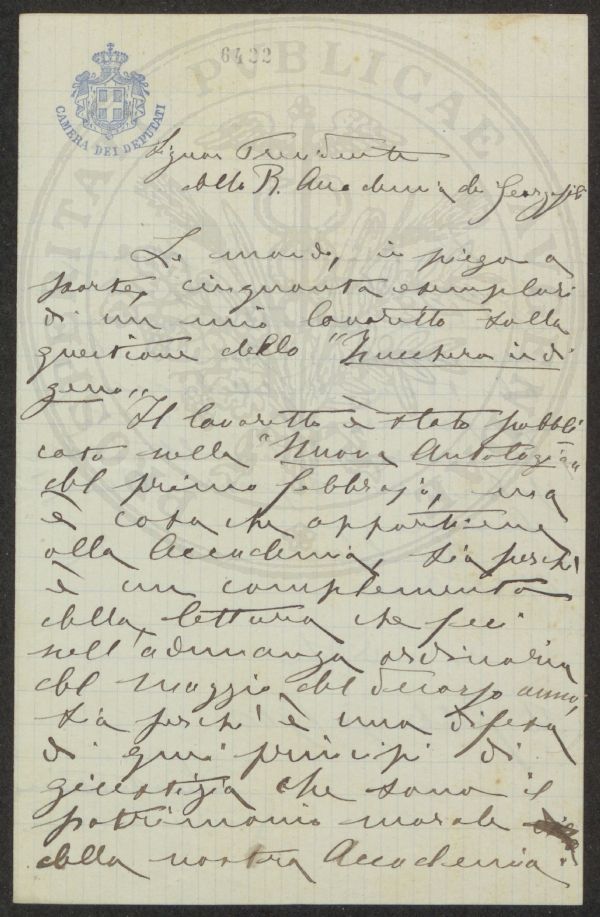 6422
CAMERA DEI DEPUTATI
PROSPERITATI PVBLICAE AVGENDAE
Signor Presidente
della R. Accademia dei Georgofili
Le mando, in piego a
parte, cinquanta esemplari
di un mio lavoretto sulla
questione dello "Zucchero indi
geno„
Il lavoretto è stato pubbli
cato nella "Nuova Antologia„
del primo febbrajo, ma
è cosa che appartiene
alla Accademia, sia perchè
è un complemento
della lettura che feci
nell'adunanza ordinaria
del Maggio del decorso anno,
sia perchè è una difesa
di quei principi di
giustizia che sono il
patrimonio morale
della nostra Accademia.